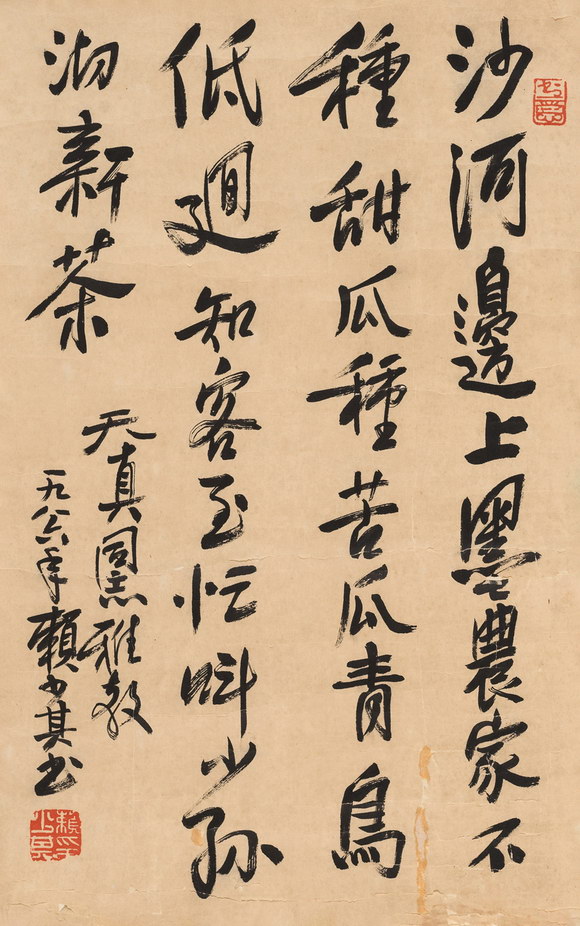 沙河邊上墨農家不
種甜瓜種苦瓜青鳥
低廻知客至忙呌小孫
沏新茶
天真同志雅教
一九八六年賴少其书